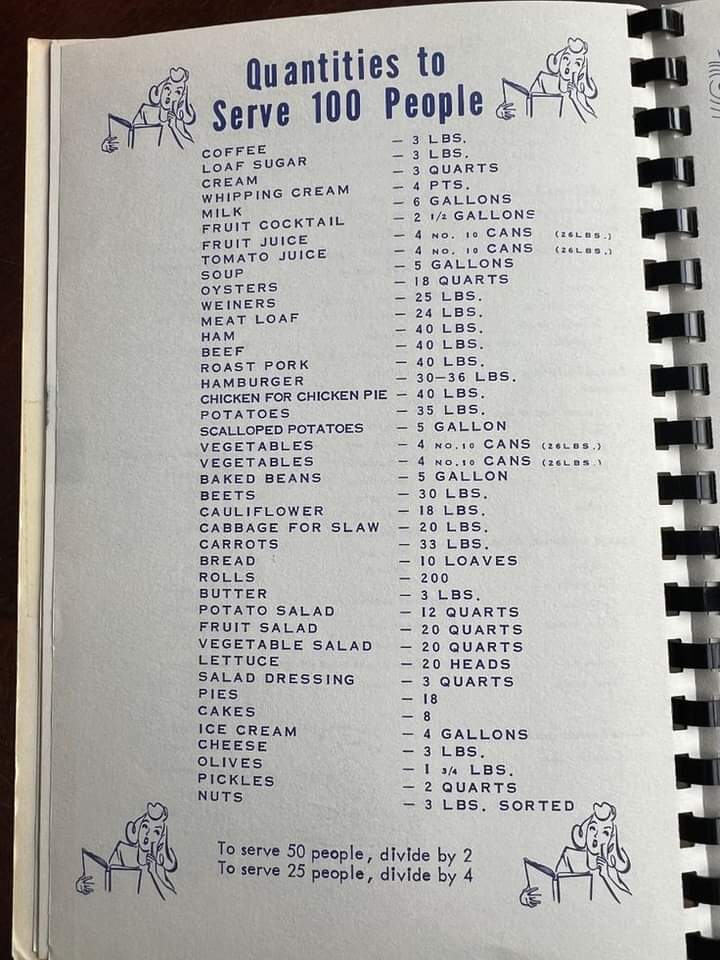 Quantities to
Serve 100 People
COFFEE – 3 LBS.
LOAF SUGAR – 3 LBS.
CREAM – 3 QUARTS
WHIPPING CREAM – 4 PTS.
MILK – 6 GALLONS
FRUIT COCKTAIL – 2 1/2 GALLONS
FRUIT JUICE – 4 NO. 10 CANS (26LBS.)
TOMATO JUICE – 4 NO. 10 CANS (26LBS.)
SOUP – 5 GALLONS
OYSTERS – 18 QUARTS
WEINERS – 25 LBS.
MEAT LOAF – 24 LBS.
HAM – 40 LBS.
BEEF – 40 LBS.
ROAST PORK – 40 LBS.
HAMBURGER – 30–36 LBS.
CHICKEN FOR CHICKEN PIE – 40 LBS.
POTATOES – 35 LBS.
SCALLOPED POTATOES – 5 GALLON
VEGETABLES – 4 NO.10 CANS (26LBS.)
VEGETABLES – 4 NO.10 CANS (26LBS.)
BAKED BEANS – 5 GALLON
BEETS – 30 LBS.
CAULIFLOWER – 18 LBS.
CABBAGE FOR SLAW – 20 LBS.
CARROTS – 33 LBS.
BREAD – 10 LOAVES
ROLLS – 200
BUTTER – 3 LBS.
POTATO SALAD – 12 QUARTS
FRUIT SALAD – 20 QUARTS
VEGETABLE SALAD – 20 QUARTS
LETTUCE – 20 HEADS
SALAD DRESSING – 3 QUARTS
PIES – 18
CAKES – 8
ICE CREAM – 4 GALLONS
CHEESE – 3 LBS.
OLIVES – 1 3/4 LBS.
PICKLES – 2 QUARTS
NUTS – 3 LBS. SORTED
To serve 50 people, divide by 2
To serve 25 people, divide by 4